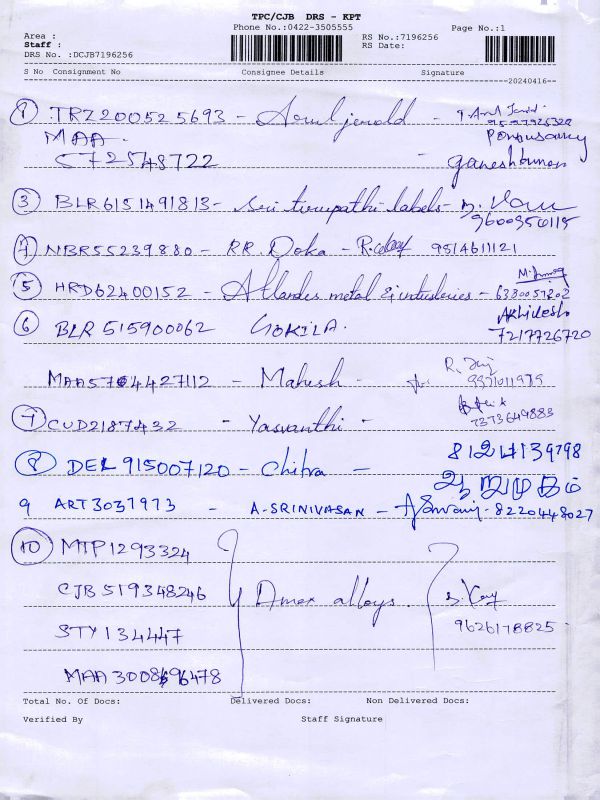 TPC/CJB DRS - KPT
Phone No.:0422-3505555
Area :
Staff :
DRS No. :DCJB7196256
RS No.:7196256
RS Date:
Page No.:1
S No Consignment No Consignee Details Signature
20240416--
① TRZ200525693 - Arul jerald -
MAA
C72548722 - Ganeshkumar
③ BLR6151491813 - sri tirupathi labels -
9600356115
NBR55239880 - RR. Doka - 9514611121
⑤ HRD62400152 - metal & industries - 6380057202
⑥ BLR 515900062 GOKILA. Akhilesh
7217726720
MAA5704427112 - Mahesh -
⑦ CUD2187432 - Yasvanthi - 7373649883
⑧ DEL 915007120 - Chitra - 8124139798
ஆறுமுகம்
9 ART3037973 - A-SRINIVASAN - 8220448027
⑩ MTP1293324
CJB 519348246 Amex alloys.
STY134447 9626178825
MAA3008696478
Total No. Of Docs: Delivered Docs: Non Delivered Docs:
Verified By Staff Signature